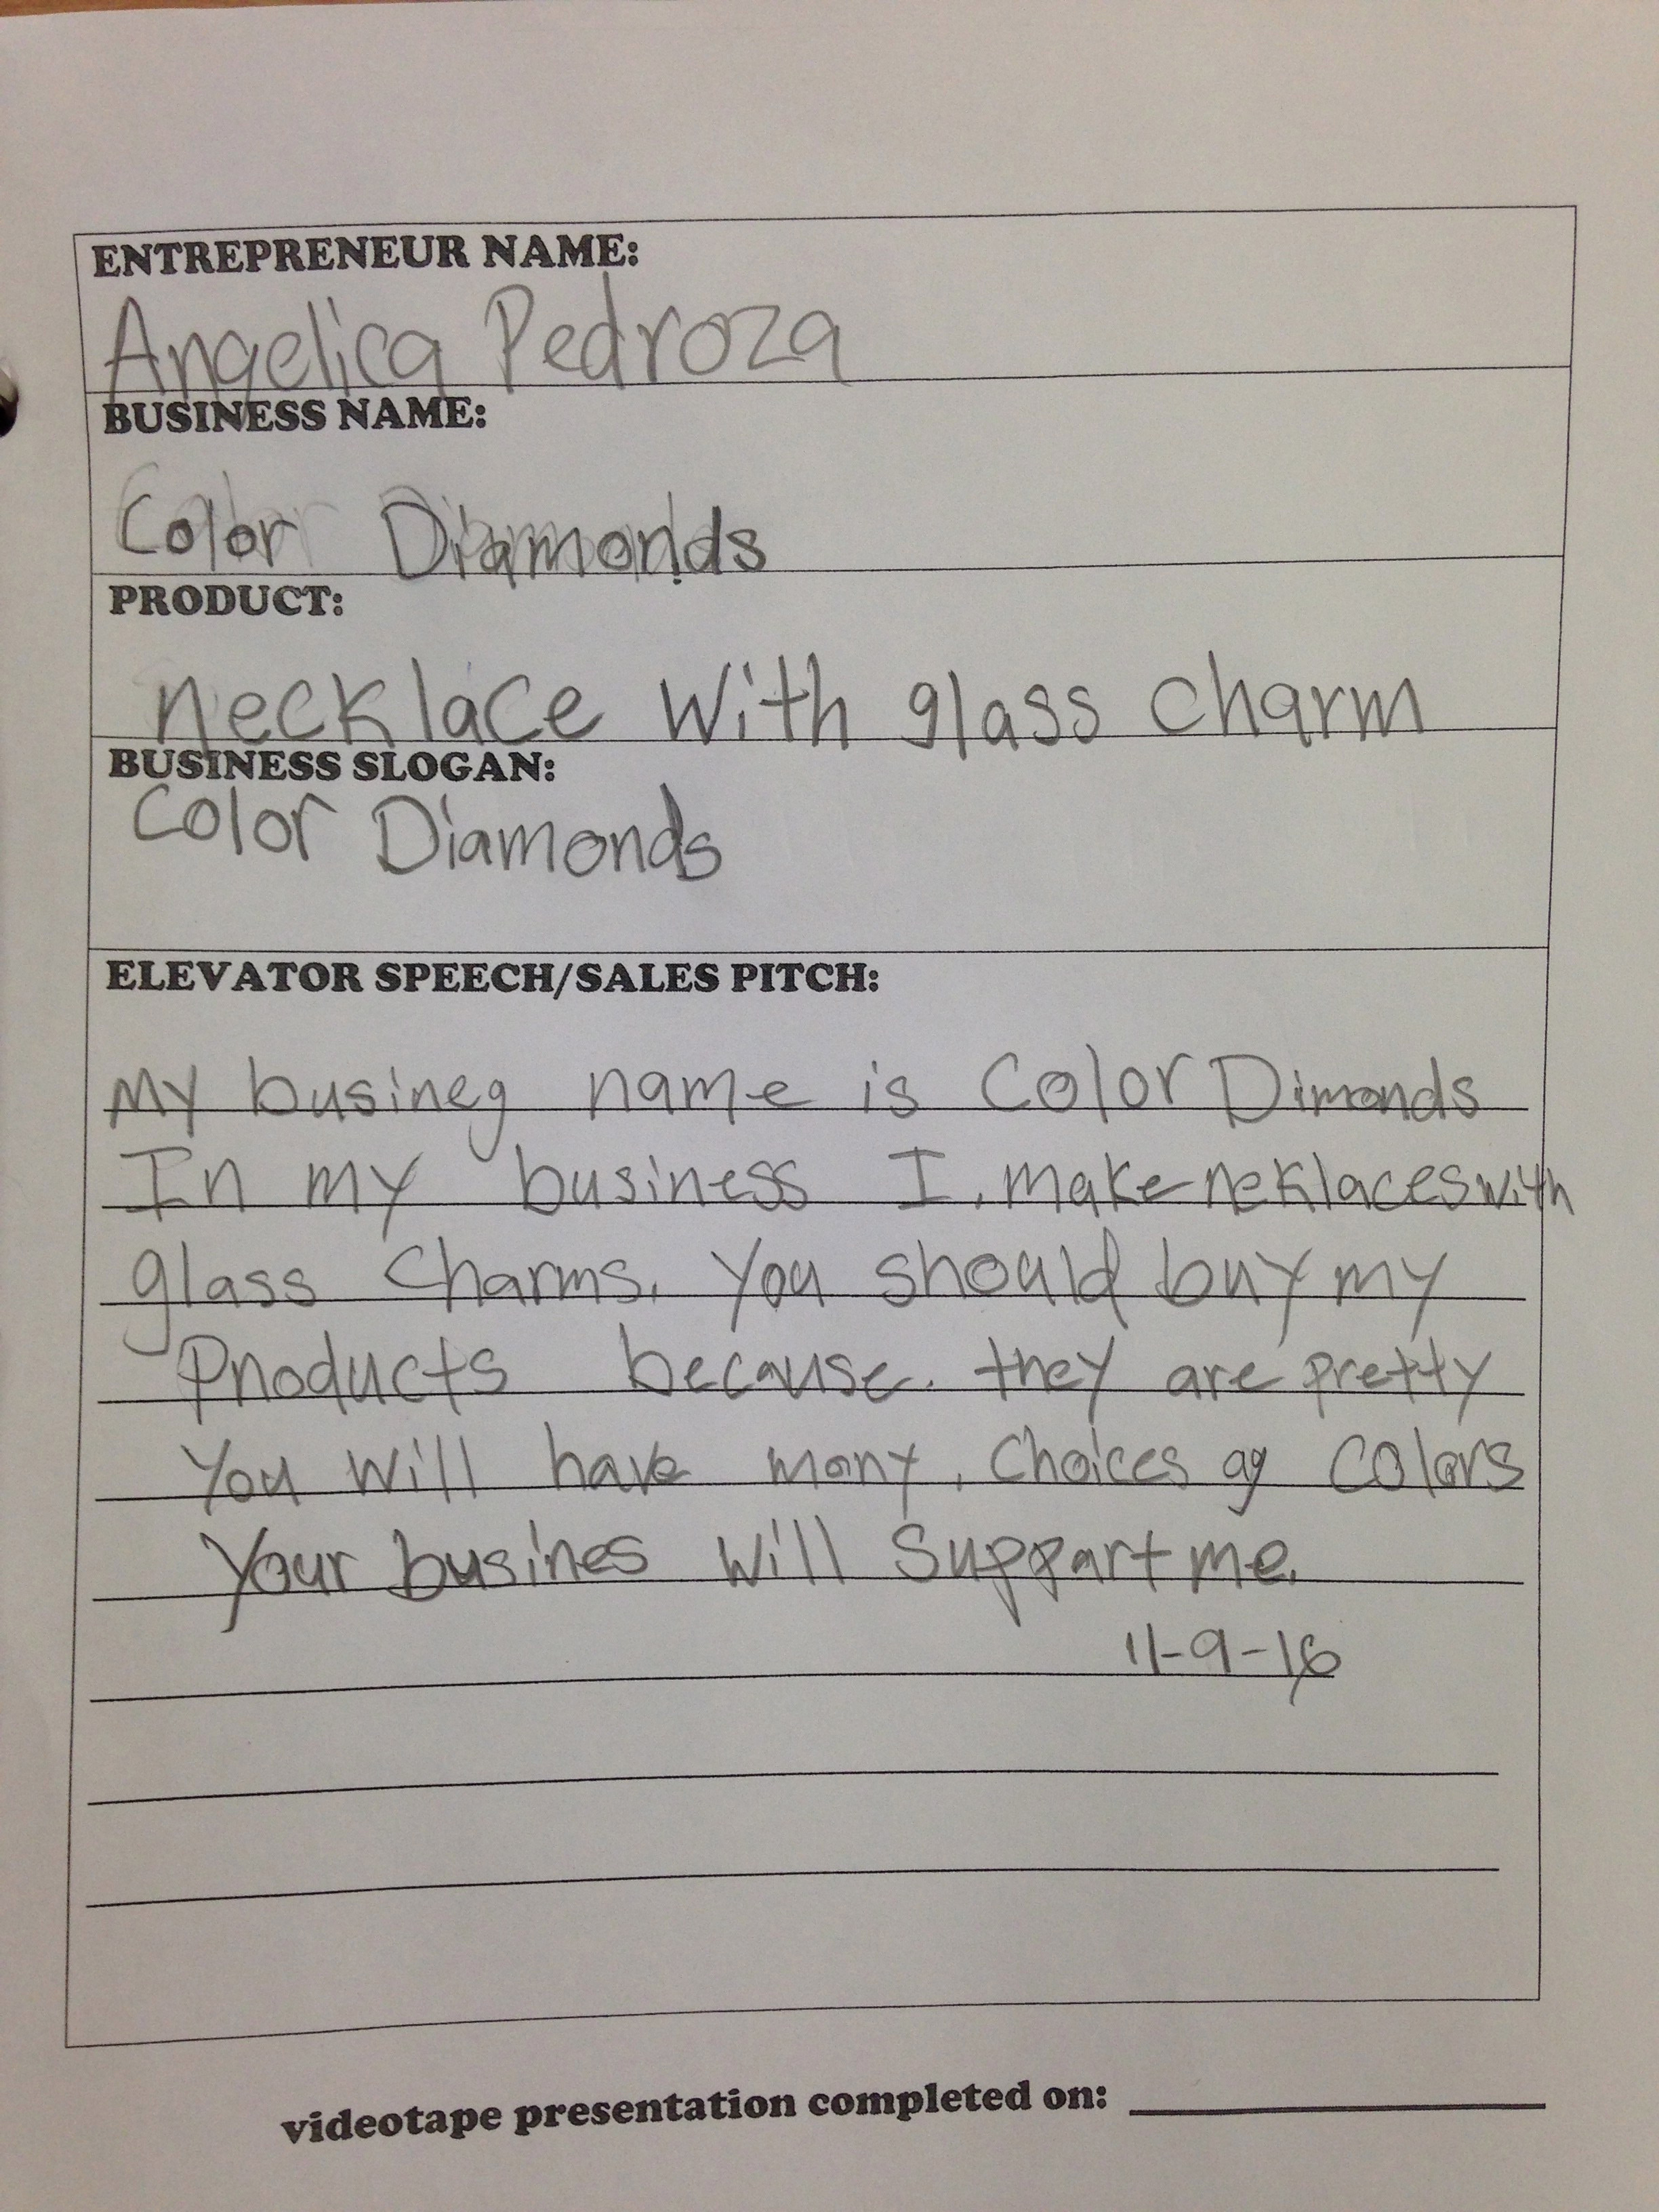 ENTREPRENEUR NAME:
Angelica Pedroza
BUSINESS NAME:
Color Diamonds
PRODUCT:
necklace with glass charm
BUSINESS SLOGAN:
Color Diamonds
ELEVATOR SPEECH/SALES PITCH:
My busineg name is Color Dimonds
In my business I. make neklaces with
glass charms. You should buy my
Products because. they are pretty
You will have many. Choices og Colors
Your busines will Suppart me.
11-9-16
videotape presentation completed on: